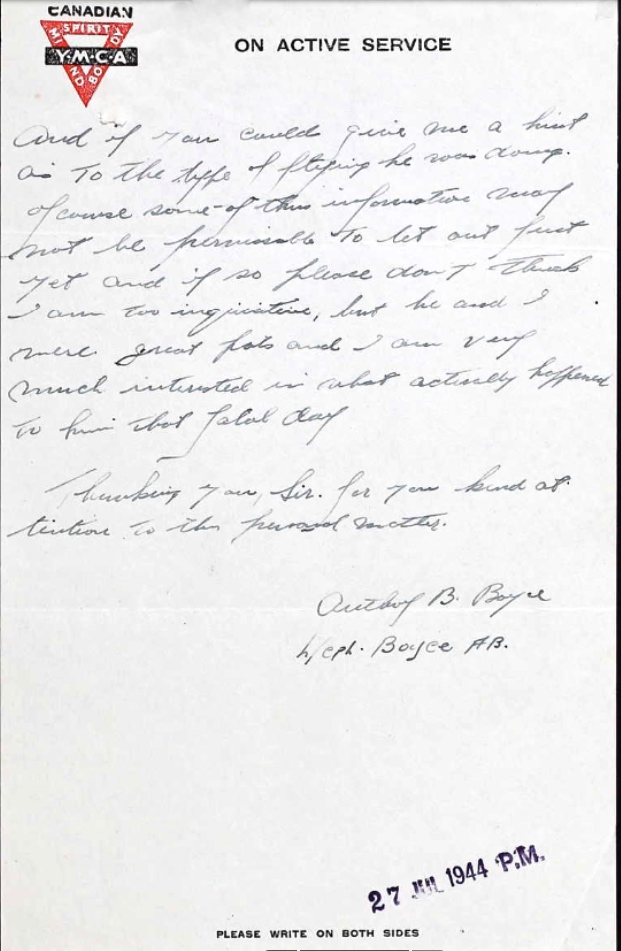 CANADIAN
SPIRIT
MIND BODY
Y·M·C·A
ON ACTIVE SERVICE
And if you could give me a hint
as to the type of flying he was doing.
Of course some of this information may
not be permissable to let out just
yet and if so please don't think
I am too inquisitive, but he and I
were great pals and I am very
much interested in what actually happened
to him that fatal day
Thanking you, Sir. for you kind at-
tention to this personal matter.
Anthony B. Boyce
L/Cpl. Boyce AB.
27 JUL 1944 P.M.
PLEASE WRITE ON BOTH SIDES